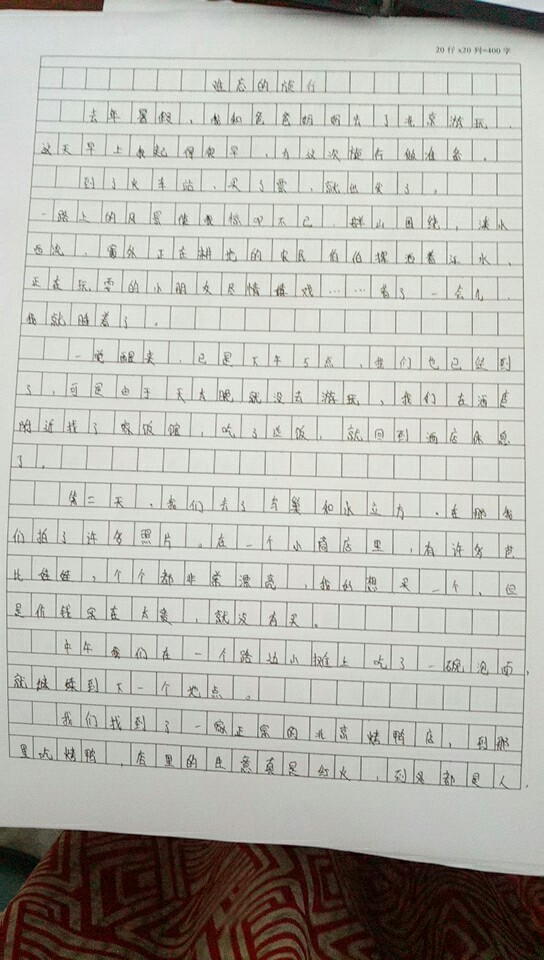 20行x20列=400字
难忘的旅行
去年暑假，我和爸爸妈妈去了北京游玩．
这天早上我起得很早，为这次旅行做准备。
到了火车站，买了票，就出发了。
一路上的风景使我惊叹不已．群山围绕，溪水
西流．窗外正在耕地的农民伯伯挥洒着汗水，
正在玩耍的小朋友尽情嬉戏……看了一会儿．
我就睡着了。
一觉醒来．已是下午5点，我们也已经到
了，可是由于天太晚就没去游玩，我们在酒店
附近找了家饭馆，吃了些饭，就回到酒店休息
了。
第二天，我们去了鸟巢和水立方．在那我
们拍了许多照片。在一个小商店里，有许多芭
比娃娃，个个都非常漂亮，我好想买一个，但
是价钱实在太贵，就没有买。
中午我们在一个路边小摊上吃了一碗泡面，
就继续到下一个地点。
我们找到了一家正宗的北京烤鸭店，到那
里吃烤鸭，店里的生意真是红火，到处都是人．